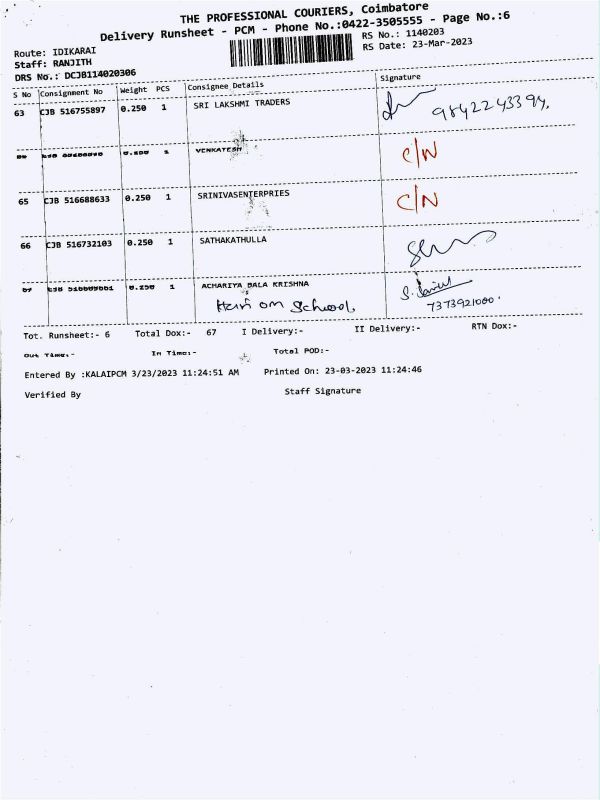 THE PROFESSIONAL COURIERS, Coimbatore
Delivery Runsheet - PCM - Phone No.:0422-3505555 - Page No.:6
Route: IDIKARAI
RS No.: 1140203
Staff: RANJITH
RS Date: 23-Mar-2023
DRS No.: DCJB114020306
S No Consignment No Weight PCS Consignee Details Signature
63 CJB 516755897 0.250 1 SRI LAKSHMI TRADERS 9842243394,
1 VENKATESH C/N
65 CJB 516688633 0.250 1 SRINIVASENTERPRIES C/N
66 CJB 516732103 0.250 1 SATHAKATHULLA
0.250 1 ACHARIYA BALA KRISHNA
Hari om School, 7373921000.
Tot. Runsheet:- 6 Total Dox:- 67 I Delivery:- II Delivery:- RTN Dox:-
Out Time:- In Time:- Total POD:-
Entered By :KALAIPCM 3/23/2023 11:24:51 AM Printed On: 23-03-2023 11:24:46
Verified By Staff Signature